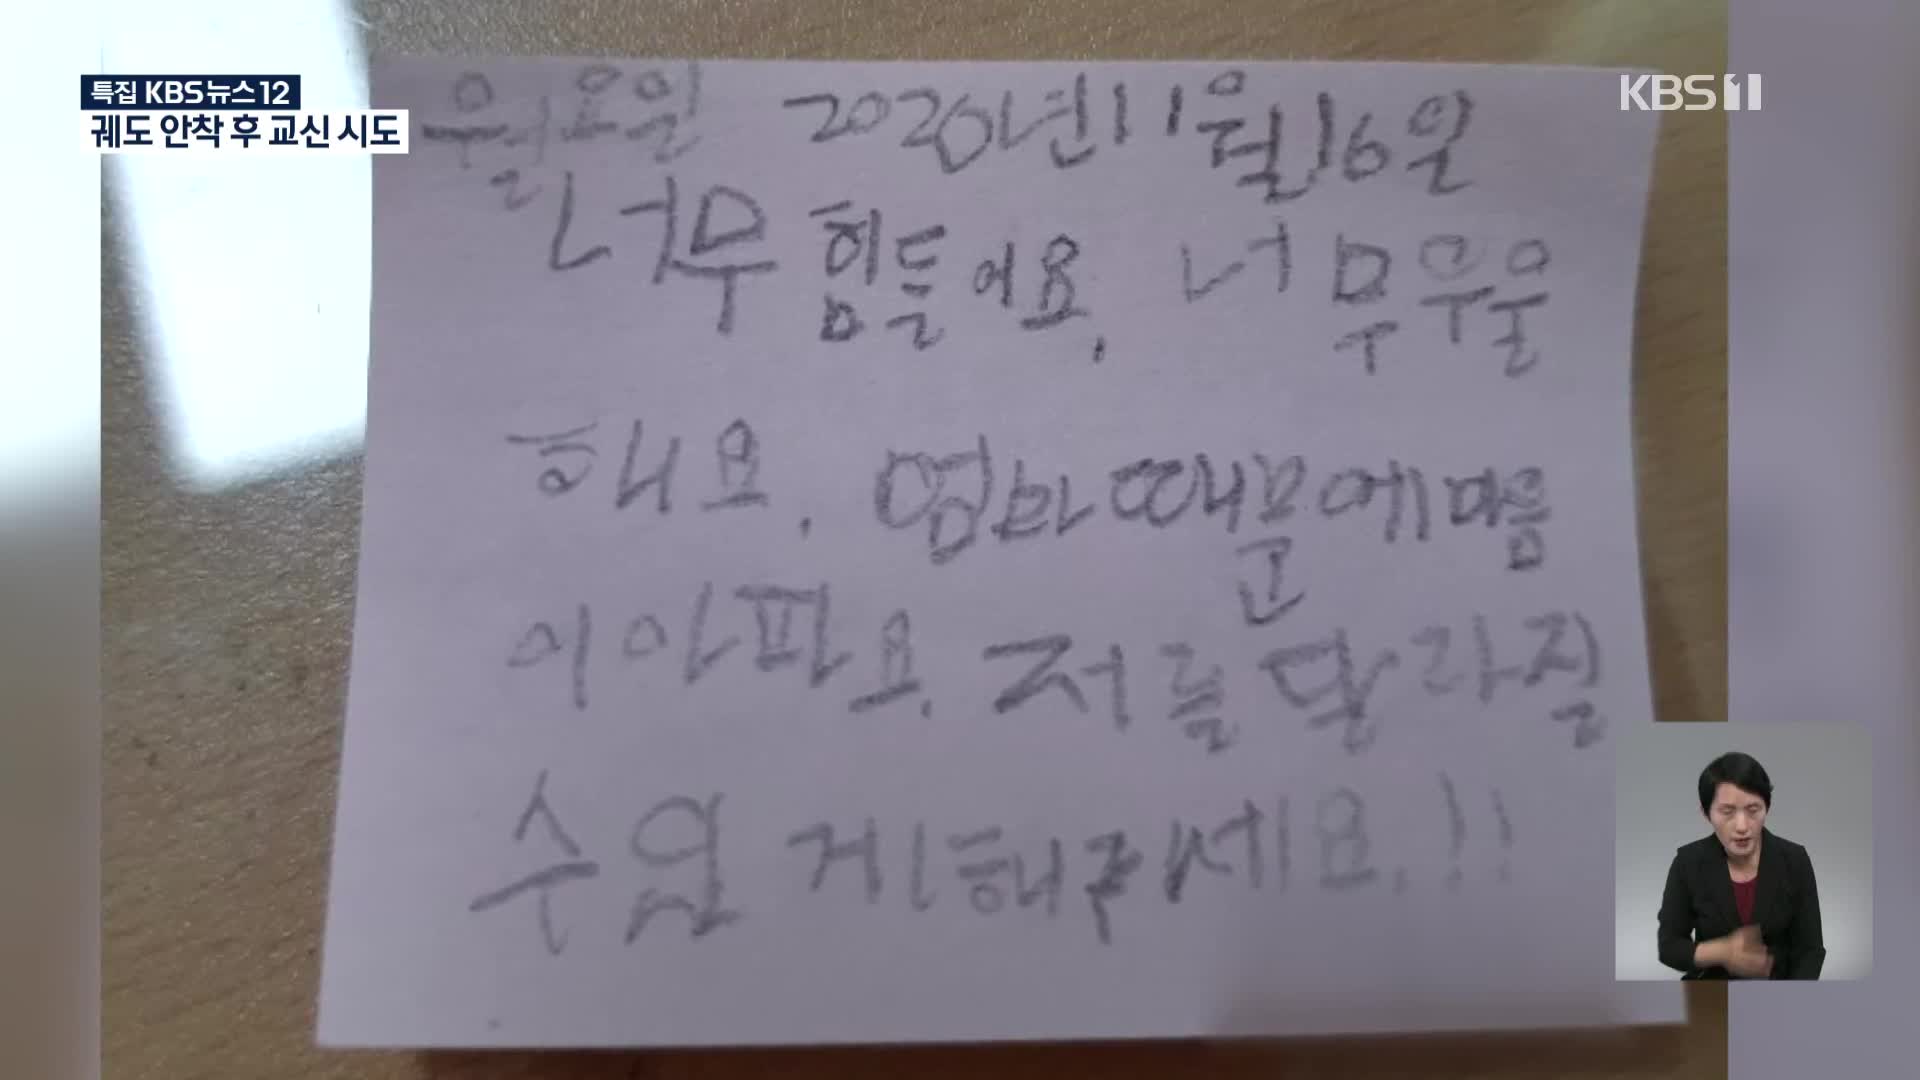 특집 KBS뉴스12
궤도 안착 후 교신 시도
KBS 1
월요일 2020년 11월 16일
너무 힘들어요, 너무 우울
해요. 엄마 때문에 마음
이 아파요. 저를 달라질
수 있게 해주세요.!!